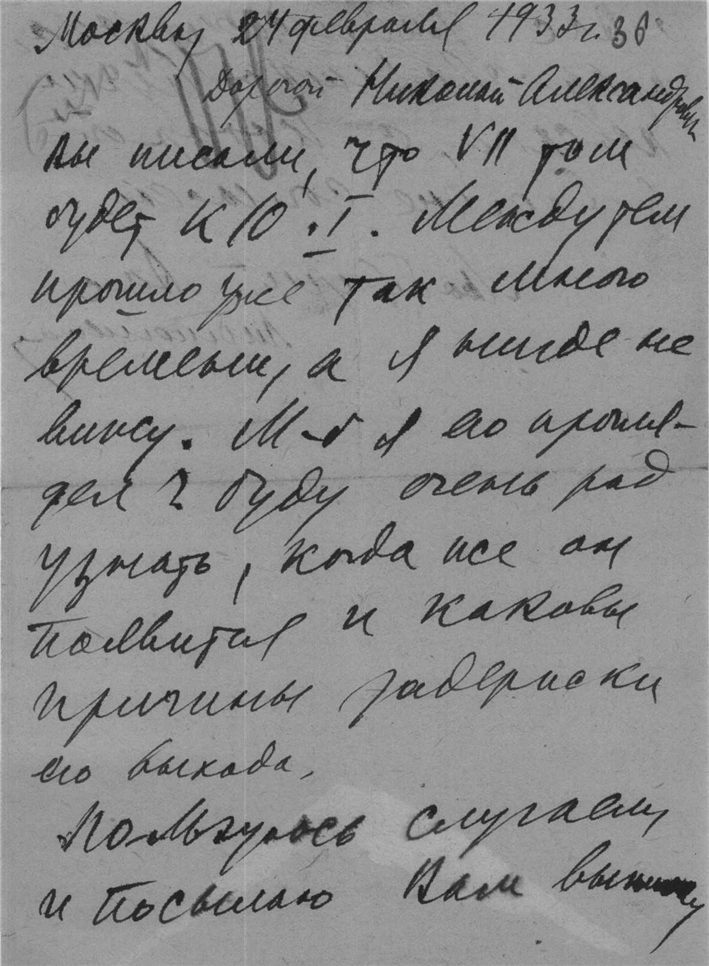 Москва, 24 февраля 1933 г. 36
Дорогой Николай Александрович
Вы писали, что VII том
будет к 10.I. Между тем
прошло уже так много
времени, а я нигде не
вижу. М-б я его прогля-
дел? буду очень рад
узнать, когда же он
появится и каковы
причины задержки
его выхода.
Пользуюсь случаем
и посылаю Вам